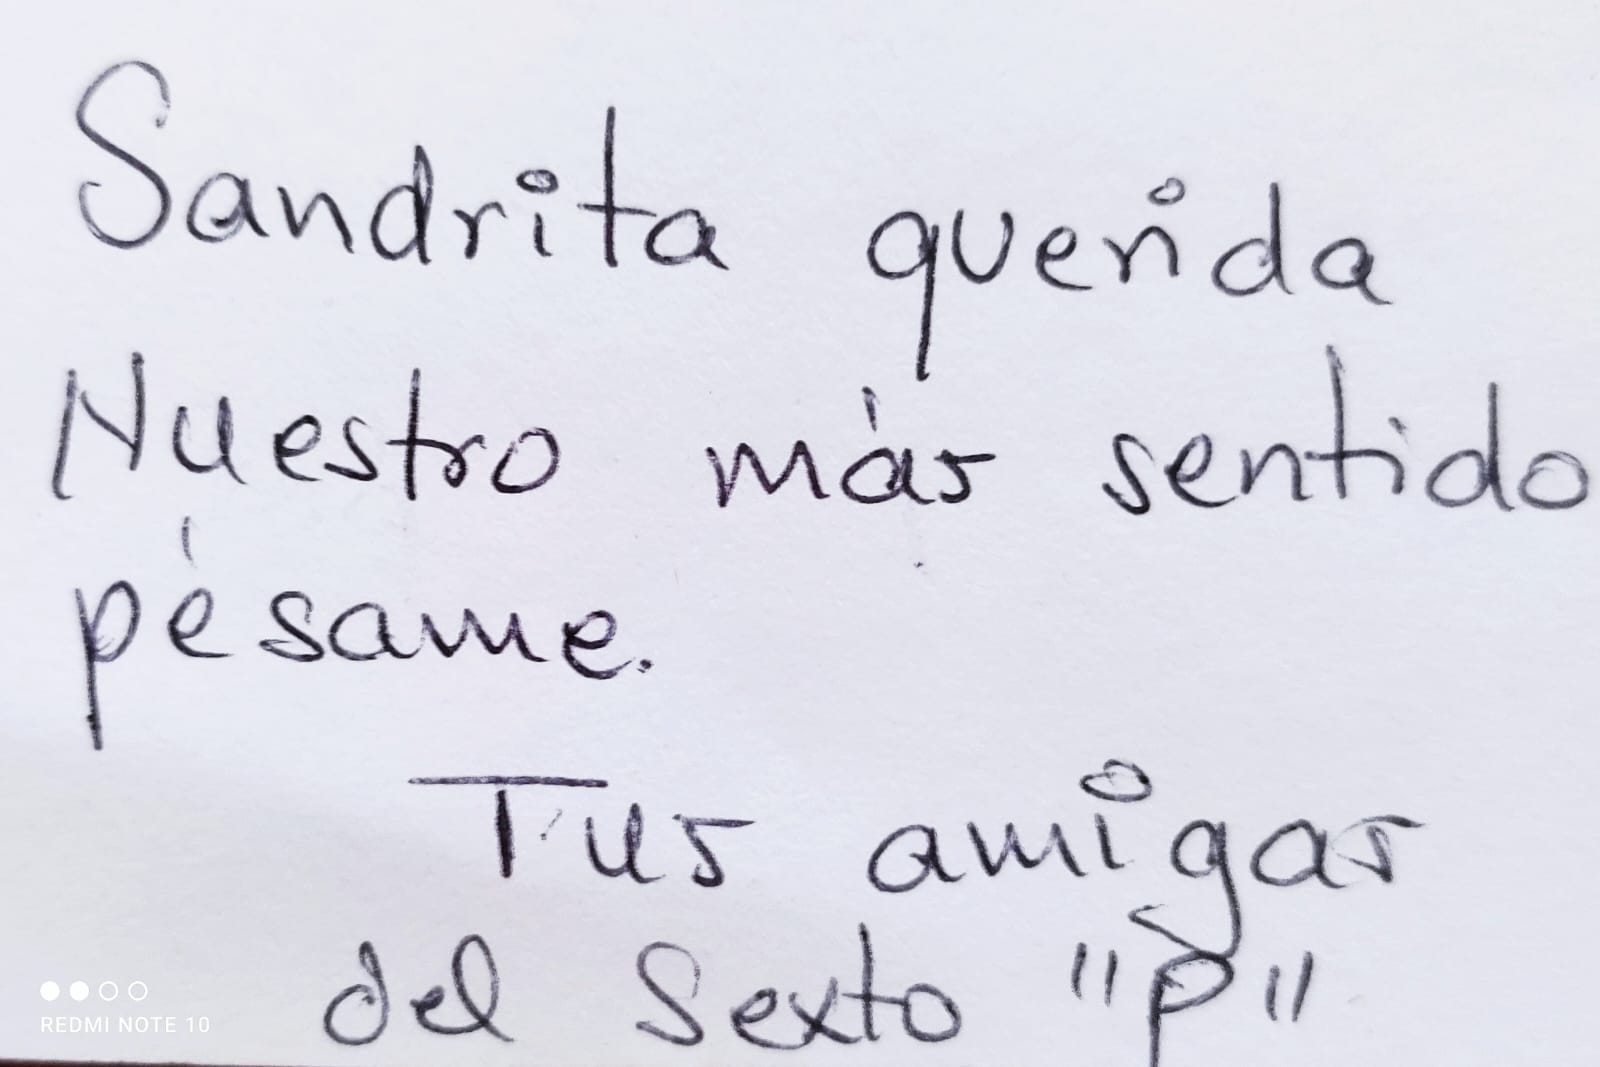 Sandrita querida
Nuestro más sentido
pésame.
Tus amigas
del Sexto "P"
REDMI NOTE 10